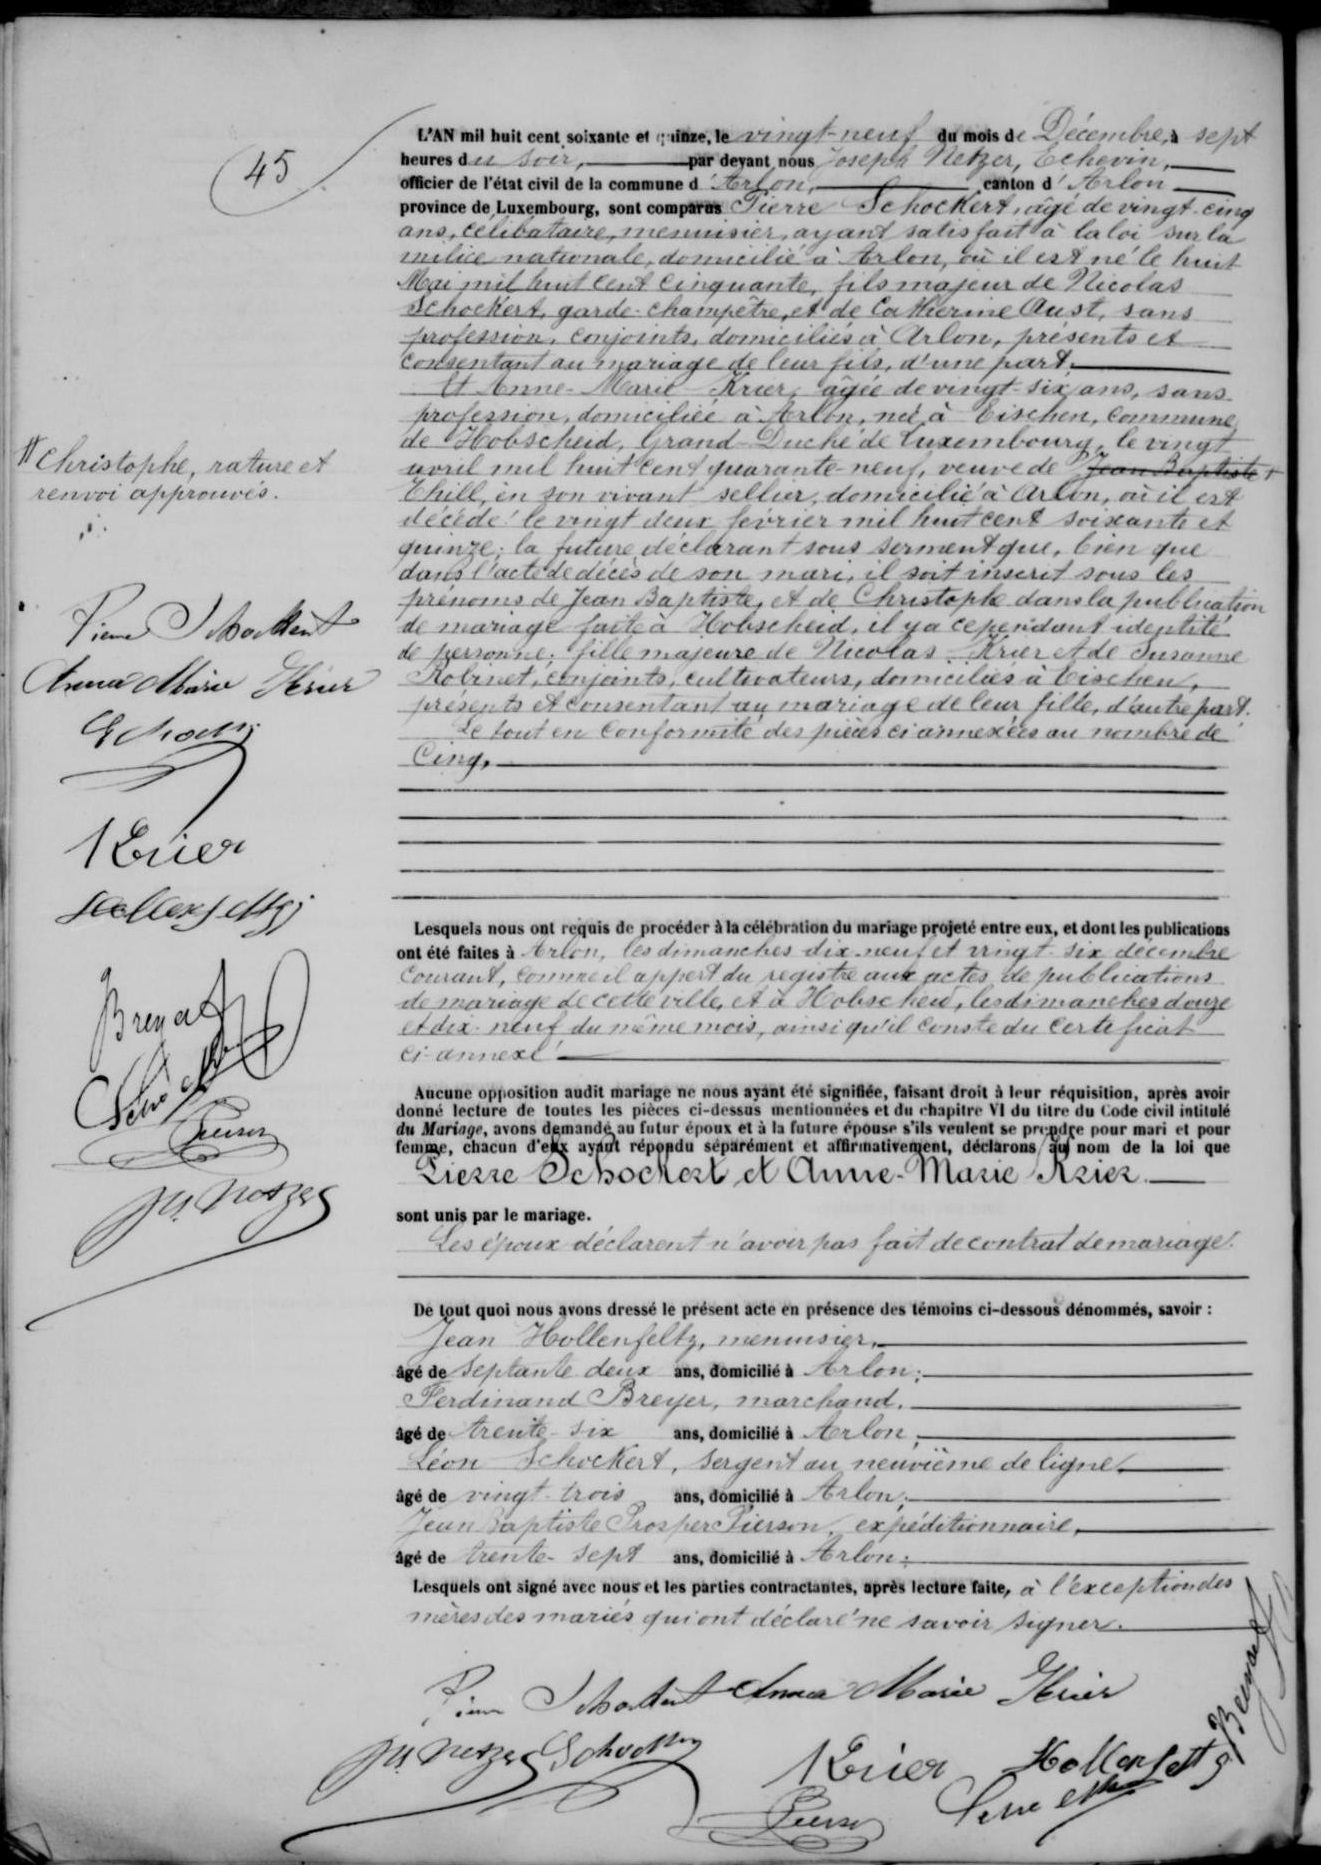 45
L'AN mil huit cent soixante et quinze, le vingt-neuf du mois de Décembre, à sept
heures du soir, par devant nous Joseph Netzer, Echevin,
officier de l'état civil de la commune d'Arlon, canton d'Arlon
province de Luxembourg, sont comparus Pierre Schockert, âgé de vingt-cinq
ans, célibataire, menuisier, ayant satisfait à la loi sur la
milice nationale, domicilié à Arlon, où il est né le huit
Mai mil huit cent cinquante, fils majeur de Nicolas
Schockert, garde-champêtre, et de Catherine Aust, sans
profession, conjoints, domiciliés à Arlon, présents et
consentant au mariage de leur fils, d'une part.
Et Anne-Marie Krier, âgée de vingt-six ans, sans
profession, domiciliée à Arlon, née à Eischen, commune
de Hobscheid, Grand-Duché de Luxembourg, le vingt
avril mil huit cent quarante-neuf, veuve de Jean Baptiste #
Thill, en son vivant sellier, domicilié à Arlon, où il est
décédé le vingt deux février mil huit cent soixante et
quinze; la future déclarant sous serment que, bien que
dans l'acte de décès de son mari, il soit inscrit sous les
prénoms de Jean Baptiste, et de Christophe dans la publication
de mariage faite à Hobscheid, il y a cependant identité
de personne; fille majeure de Nicolas Krier et de Susanne
Robinet, conjoints, cultivateurs, domiciliés à Eischen,
présents et consentant au mariage de leur fille, d'autre part.
Le tout en conformité des pièces ci annexées au nombre de
Cinq.
# Christophe, rature et
renvoi approuvés.
Pierre Schockert
Anna Maria Krier
Krier
Hollenfeltz
Breyer
Pierson
Js. Netzer
Lesquels nous ont requis de procéder à la célébration du mariage projeté entre eux, et dont les publications
ont été faites à Arlon, les dimanches dix-neuf et vingt-six décembre
courant, comme il appert du registre aux actes de publications
de mariage de cette ville, et à Hobscheid, les dimanches douze
et dix-neuf du même mois, ainsi qu'il conste du certificat
ci-annexé.
Aucune opposition audit mariage ne nous ayant été signifiée, faisant droit à leur réquisition, après avoir
donné lecture de toutes les pièces ci-dessus mentionnées et du chapitre VI du titre du Code civil intitulé
du Mariage, avons demandé au futur époux et à la future épouse s'ils veulent se prendre pour mari et pour
femme, chacun d'eux ayant répondu séparément et affirmativement, déclarons au nom de la loi que
Pierre Schockert et Anne-Marie Krier
sont unis par le mariage.
Les époux déclarent n'avoir pas fait de contrat de mariage.
De tout quoi nous avons dressé le présent acte en présence des témoins ci-dessous dénommés, savoir :
Jean Hollenfeltz, menuisier,
âgé de septante deux ans, domicilié à Arlon;
Ferdinand Breyer, marchand,
âgé de trente-six ans, domicilié à Arlon;
Léon Schockert, sergent au neuvième de ligne,
âgé de vingt-trois ans, domicilié à Arlon;
Jean Baptiste Prosper Pierson, expéditionnaire,
âgé de trente-sept ans, domicilié à Arlon;
Lesquels ont signé avec nous et les parties contractantes, après lecture faite, à l'exception des
mères des mariés qui ont déclaré ne savoir signer.
Pierre Schockert Anna Maria Krier
Js. Netzer
Krier Hollenfeltz Breyer
Pierson